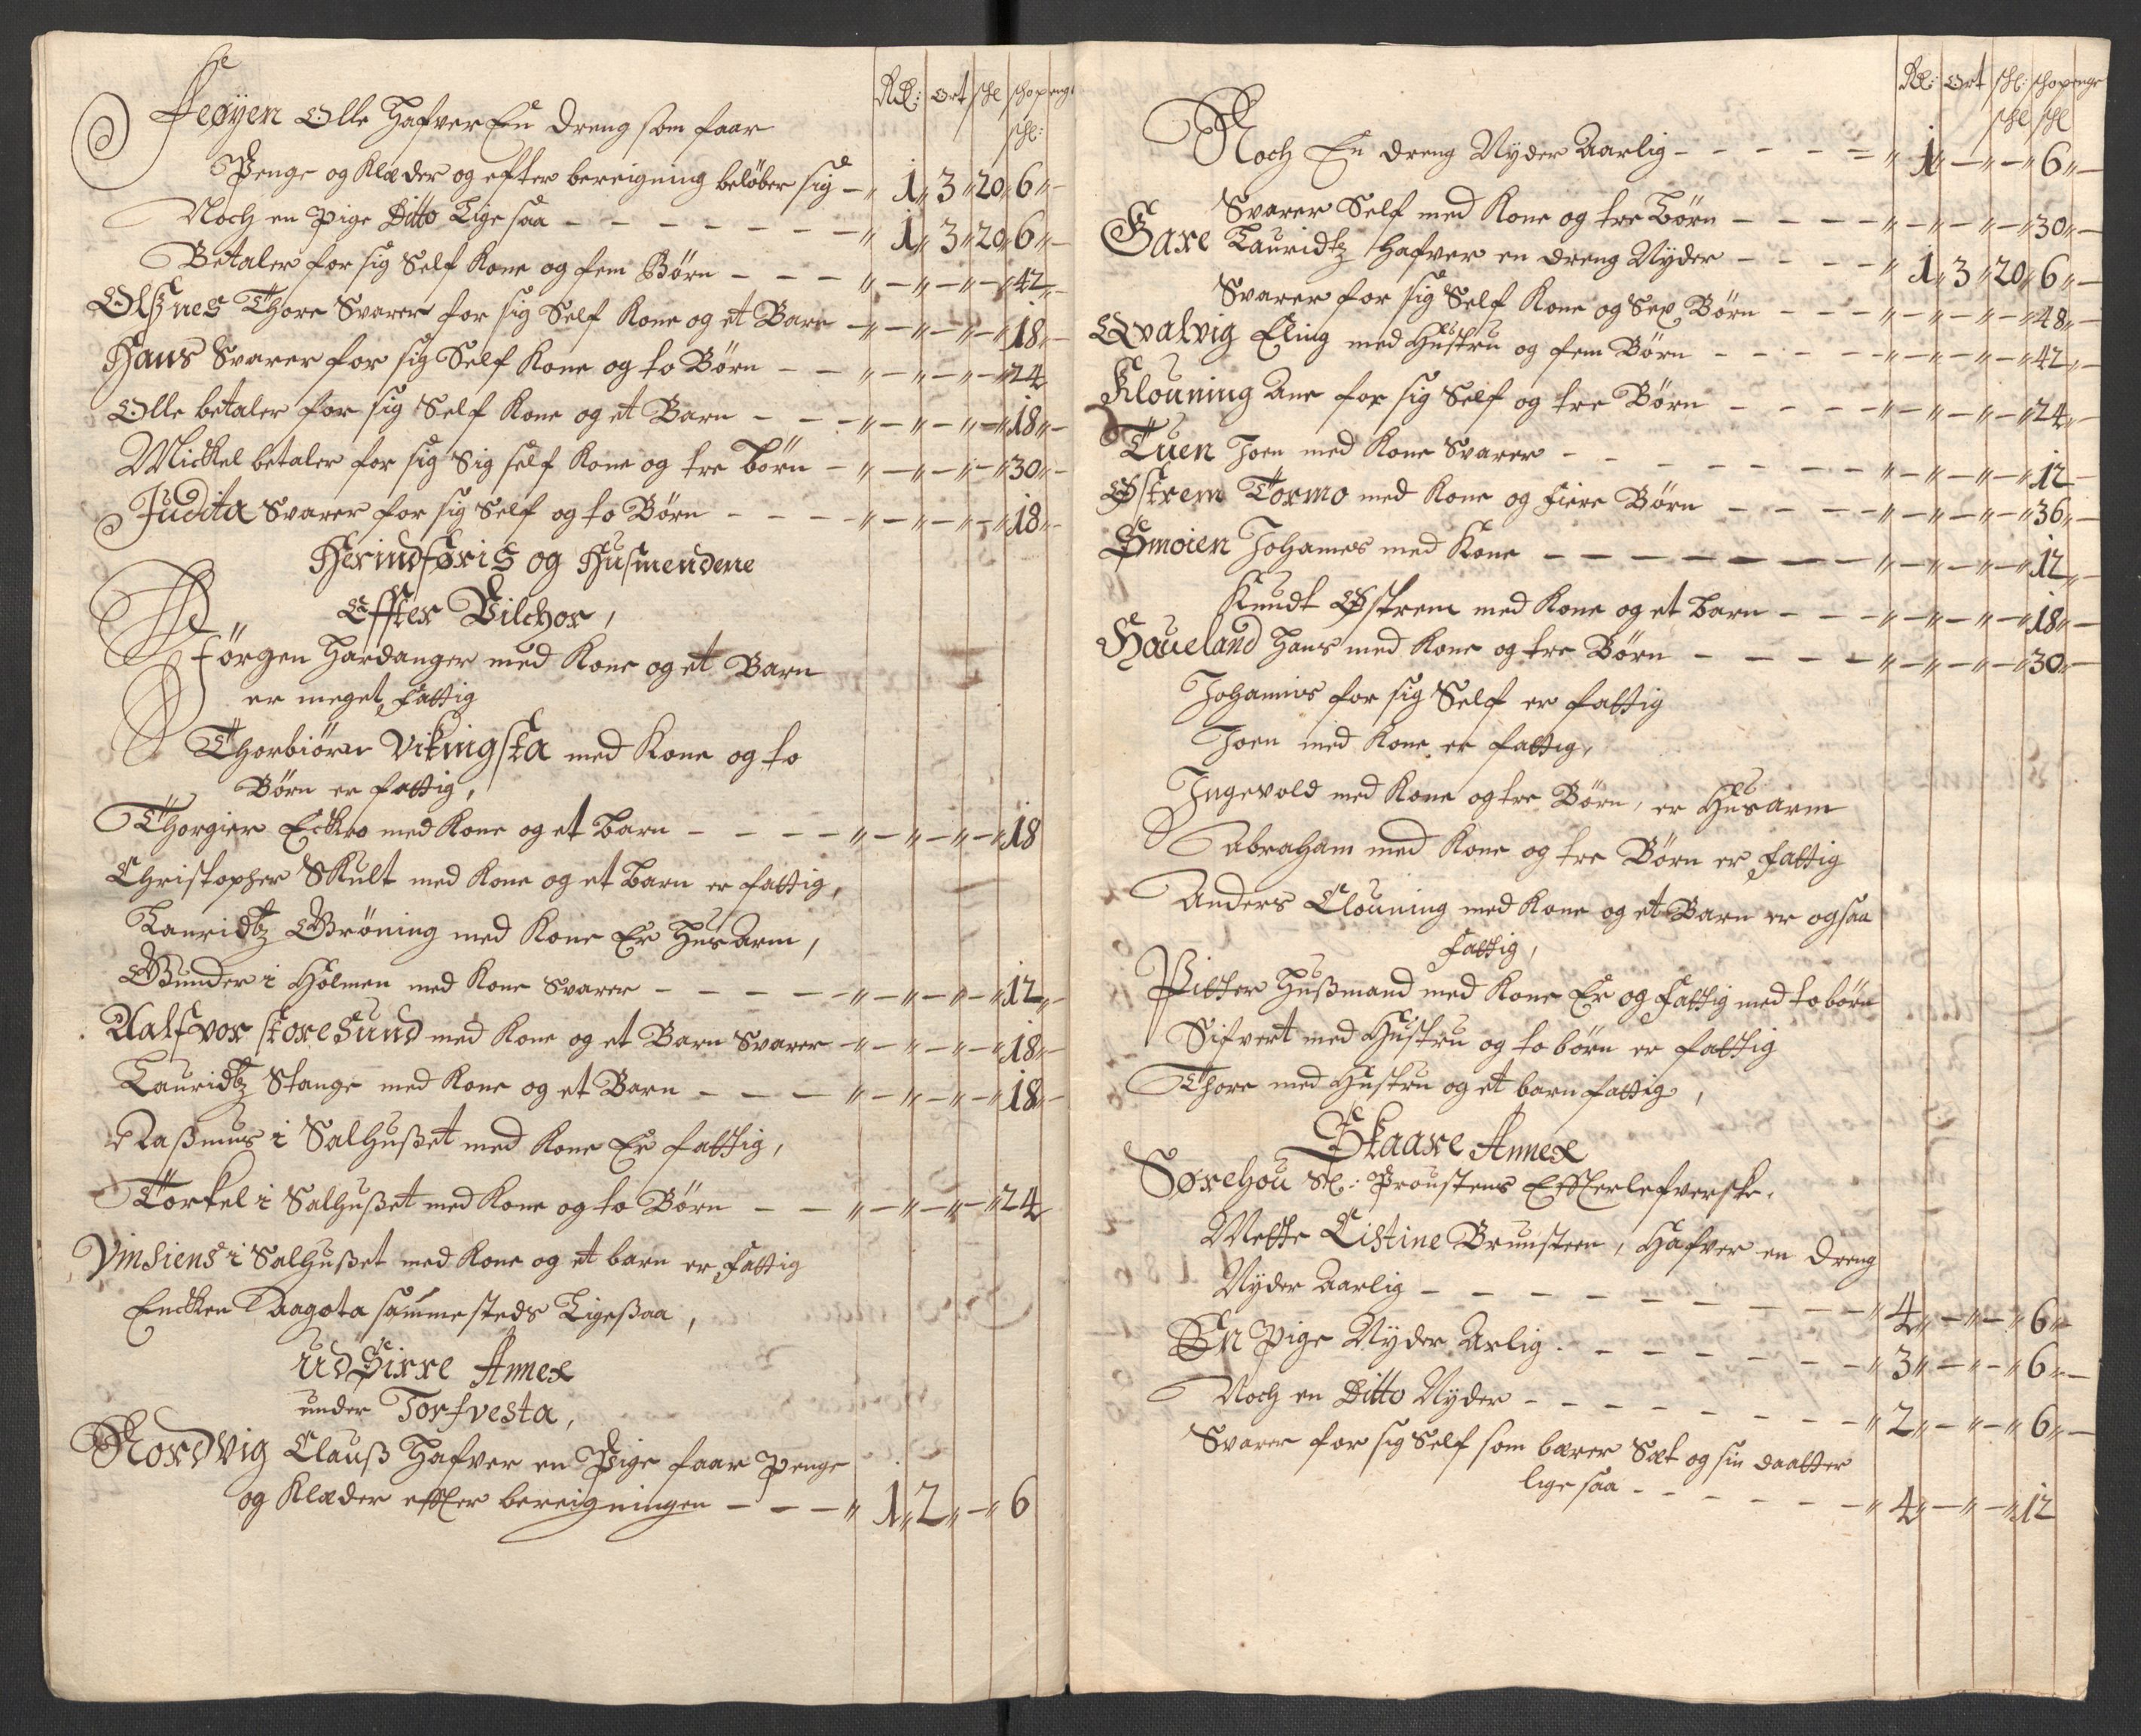 Rd: Ort skl skopenge
skl:
Feøyen Olle Hafver En dreng som faar
Penge og Klæder og efter bereigning beløber sig – „ 1 „ 3 „ 20 „ 6 „ –
Noch en pige Ditto Lige saa – – – – – – – „ 1 „ 3 „ 20 „ 6 „ –
Betaler for sig Self Kone og fem Børn – – – „ – „ – „ – „ 42 „ –
Olsnes Thore Svarer for sig Self Kone og et Barn – „ – „ – „ – „ 18 „ –
Hans Svarer for sig Self Kone og to Børn – – „ – „ – „ – „ 24
Olle betaler for sig Self Kone og et Barn – – – „ – „ – „ – „ 18 „ –
Mickel betaler for sig Sig self Kone og tre børn – „ – „ – „ – „ 30 „ –
Judita Svarer for sig Self og to Børn – – – – „ – „ – „ – „ 18 „ –
Herindføris og Husmendene
Effter Vilchor,
Jørgen Hardanger med Kone og et Barn
er meget fattig
Thorbiørn Vikingsta med Kone og to
Børn er fattig,
Thorgier Eckro med Kone og et barn – – – – „ – „ – „ – „ 18
Christopher Skult med Kone og et barn er fattig,
Lauridtz Grøning med Kone Er Husarm,
Gunder i Holmen med Kone Svarer – – – – – „ – „ – „ – „ 12 „ –
Aalfvor storesund med Kone og et Barn Svarer – „ – „ – „ – „ 18 „ –
Lauridtz Stange med Kone og et Barn – – – „ – „ – „ – „ 18 „ –
Rasmus i Salhuset med Kone Er fattig,
Torkel i Salhuset med Kone og to Børn – – „ – „ – „ – „ 24
Vinsiens i Salhuset med Kone og et barn er fattig
Enckken Aagota samme steds Ligesaa,
Ud Sirre Annex
under Torfvesta,
Nordvig Clauss Hafver en Pige faar penge
og Klæder effter bereigningen – – – „ 1 „ 2 „ – „ 6
Rd: Ort skl: skopenge
skl skl
Noch En dreng Nyder Aarlig – – – – – „ 1 „ – „ – „ 6 „ –
Svarer Self med Kone og tre børn – – – – „ – „ – „ – „ 30 „ –
Gaxe Lauridtz hafver en dreng Nyder – – – – „ 1 „ 3 „ 20 „ 6 „ –
Svarer for sig Self Kone og Sex Børn – – – „ – „ – „ – „ 48 „ –
Qvalvig Eling med Hustru og fem Børn – – – – – „ – „ – „ – „ 42 „ –
Klouning Ane for sig Self og tre Børn – – – – „ – „ – „ – „ 24 „ –
Tuen Joen med Kone Svarer – – – – – – – „ – „ – „ – „ 12 –
Østrem Tormo med Kone og fiere Børn – – – – „ – „ – „ – „ 36 „ –
Smoien Johannes med Kone – – – – – – – – „ – „ – „ – „ 12 „ –
Knudt Østrem med Kone og et barn – – – „ – „ – „ – „ 18 „ –
Haueland Hans med Kone og tre Børn – – – – – „ – „ – „ – „ 30 „ –
Johannes for sig Self er fattig
Joen med Kone er fattig,
Ingevold med Kone og tre Børn, er Husarm
Abraham med Kone og tre Børn er fattig
Anders Clouning med Kone og et Barn er ogsaa
fattig,
Pitter Husmand med Kone Er og fattig med to børn
Sifvert med Hustru og to børn er fattig
Thore med Hustru og et barn fattig,
Skaare Annex
Sørehou Sl: Proustens Effterlefverske,
Mette Cistine Brunsteen, Hafver en dreng
Nyder Aarlig – – – – – – – – – – „ 4 „ – „ – „ 6 „ –
En pige Nyder Arlig – – – – – – – – „ 3 „ – „ – „ 6 „ –
Noch en Ditto Nyder – – – – – – – – „ 2 „ – „ – „ 6 „ –
Svarer for sig Self som bærer Sæt og sin daatter
lige saa – – – – – – „ 4 „ – „ – „ 12